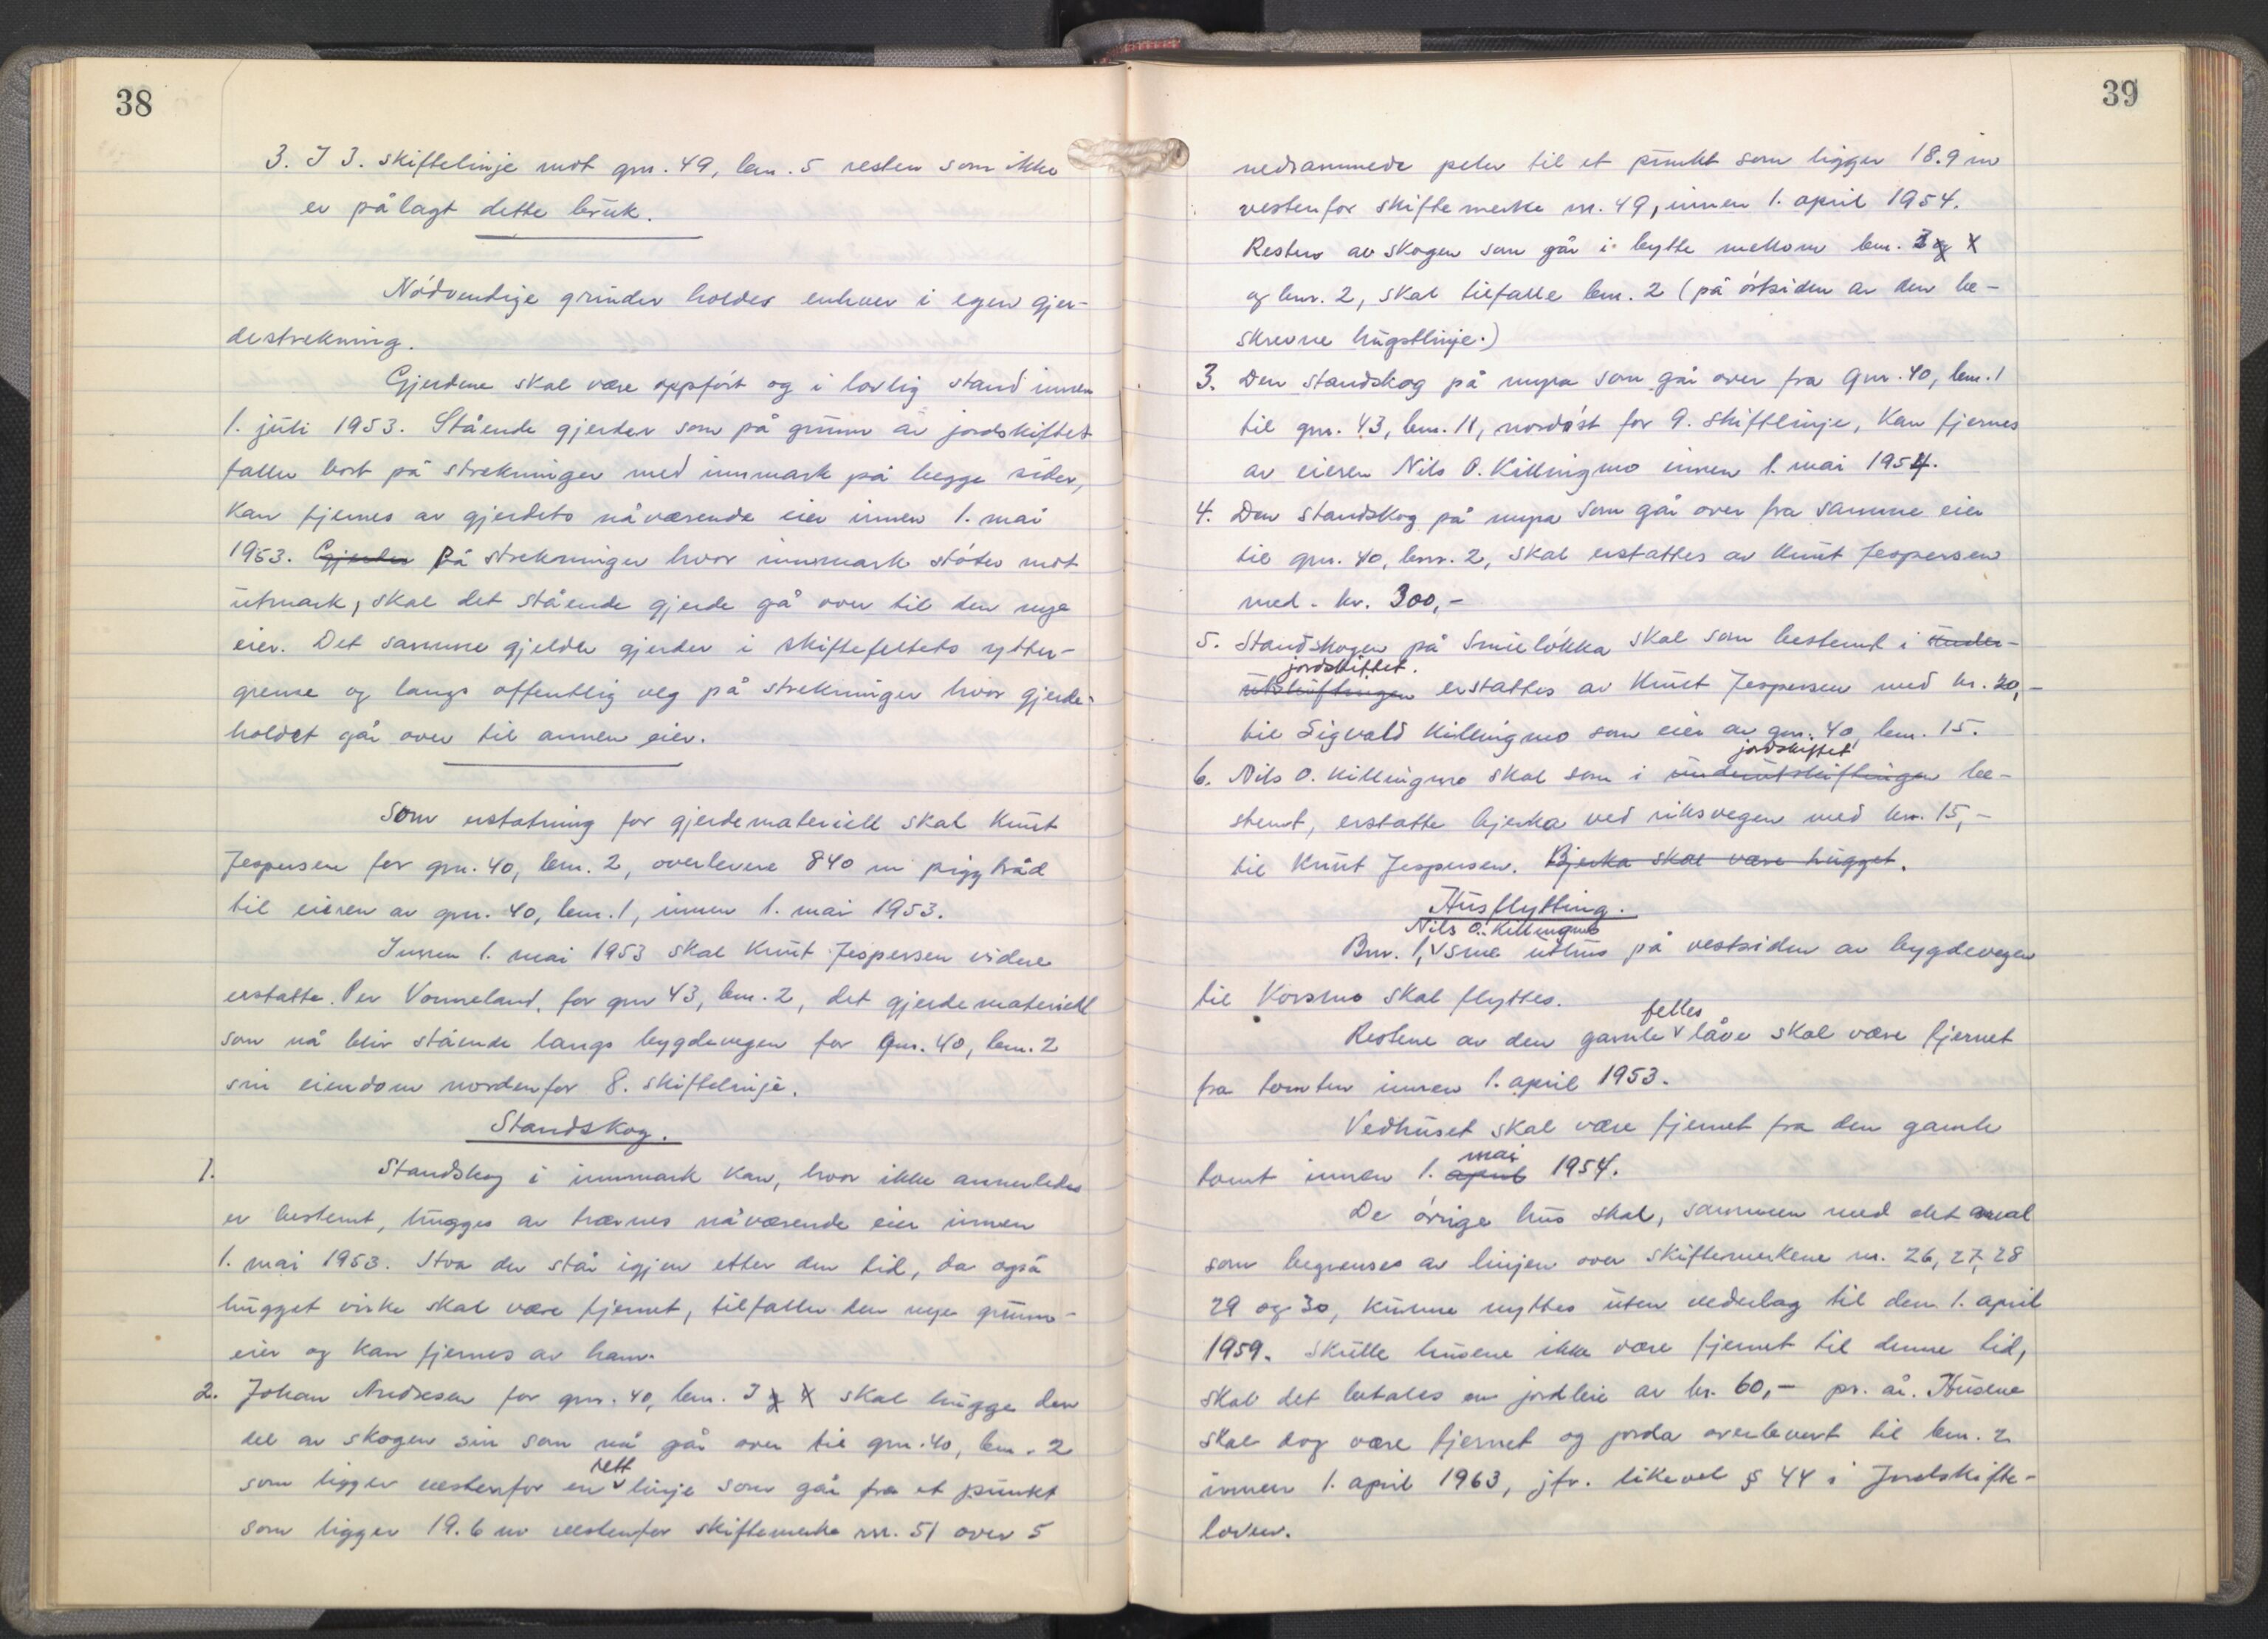 38
3. I 3. skiftelinje mot gnr. 49, bnr. 5 resten som ikke
er pålagt dette bruk.
Nödvendige grinder holdes enhver i egen gjer-
destrekning.
Gjerdene skal være oppfört og i lovlig stand innen
1. juli 1953. Stående gjerder som på grunn av jordskiftet
faller bort på strekninger med innmark på begge sider,
kan fjernes av gjerdets nåværende eier innen 1. mai
1953. Gjerder På strekninger hvor innmark stöter mot
utmark, skal det stående gjerde gå over til den nye
eier. Det samme gjelder gjerder i skiftefeltets ytter-
grense og langs offentlig veg på strekninger hvor gjerde-
holdet går over til annen eier.
Som erstatning for gjerdemateriell skal Knut
Jespersen for gnr. 40, bnr. 2, overlevere 840 m piggtråd
til eieren av gnr. 40, bnr. 1, innen 1. mai 1953.
Innen 1. mai 1953 skal Knut Jespersen videre
erstatte Per Vonneland, for gnr 43, bnr. 2, det gjerdemateriell
som nå blir stående langs bygdevegen for gnr. 40, bnr. 2
sin eiendom nordenfor 8. skiftelinje.
Standskog.
1. Standskog i innmark kan, hvor ikke annerledes
er bestemt, hugges av trærnes nåværende eier innen
1. mai 1953. Hva der står igjen etter den tid, da også
hugget virke skal være fjernet, tilfaller den nye grunn-
eier og kan fjernes av ham.
2. Johan Andresen for gnr. 40, bnr. 3 og 4 skal hugge den
del av skogen sin som nå går over til gnr. 40, bnr. 2
som ligger vestenfor en rett linje som går fra et punkt
som ligger 19.6 m vestenfor skiftemerke nr. 51 over 5
39
nedrammede peler til et punkt som ligger 18.9 m
vestenfor skiftemerke nr. 49, innen 1. april 1954.
Resten av skogen som går i bytte mellom bnr. 3 og 4
og bnr. 2, skal tilfalle bnr. 2 (på östsiden av den be-
skrevne hugstlinje.)
3. Den standskog på myra som går over fra gnr. 40, bnr. 1
til gnr. 43, bnr. 11, nordöst for 9. skiftlinje, kan fjernes
av eieren Nils O. Killingmo innen 1. mai 1954.
4. Den standskog på myra som går over fra samme eier
til gnr. 40, bnr. 2, skal erstattes av Knut Jespersen
med kr. 300,-
5. Standskogen på Smielökka skal som bestemt i under-
jordskiftet.
utskiftningen erstattes av Knut Jespersen med kr. 20,-
til Sigvald Killingmo som eier av gnr. 40, bnr. 15.
jordskiftet
6. Nils O. Killingmo skal som i underutskiftningen be-
stemt, erstatte bjerka ved riksvegen med kr. 15,-
til Knut Jespersen. Bjerka skal være hugget.
Husflytting.
Nils O. Killingmo
Bnr. 1, sine uthus på vestsiden av bygdevegen
til Korsmo skal flyttes.
felles
Restene av den gamle låve skal være fjernet
fra tomten innen 1. april 1953.
Vedhuset skal være fjernet fra den gamle
mai
tomt innen 1. april 1954.
De övrige hus skal, sammen med det areal
som begrenses av linjen over skiftemerkene nr. 26, 27, 28
29 og 30, kunne nyttes uten vederlag til den 1. april
1959. Skulle husene ikke være fjernet til denne tid,
skal det betales en jordleie av kr. 60,- pr. år. Husene
skal dog være fjernet og jorda overlevert til bnr. 2
innen 1. april 1963, jfr. likevel § 44 i Jordskifte-
loven.